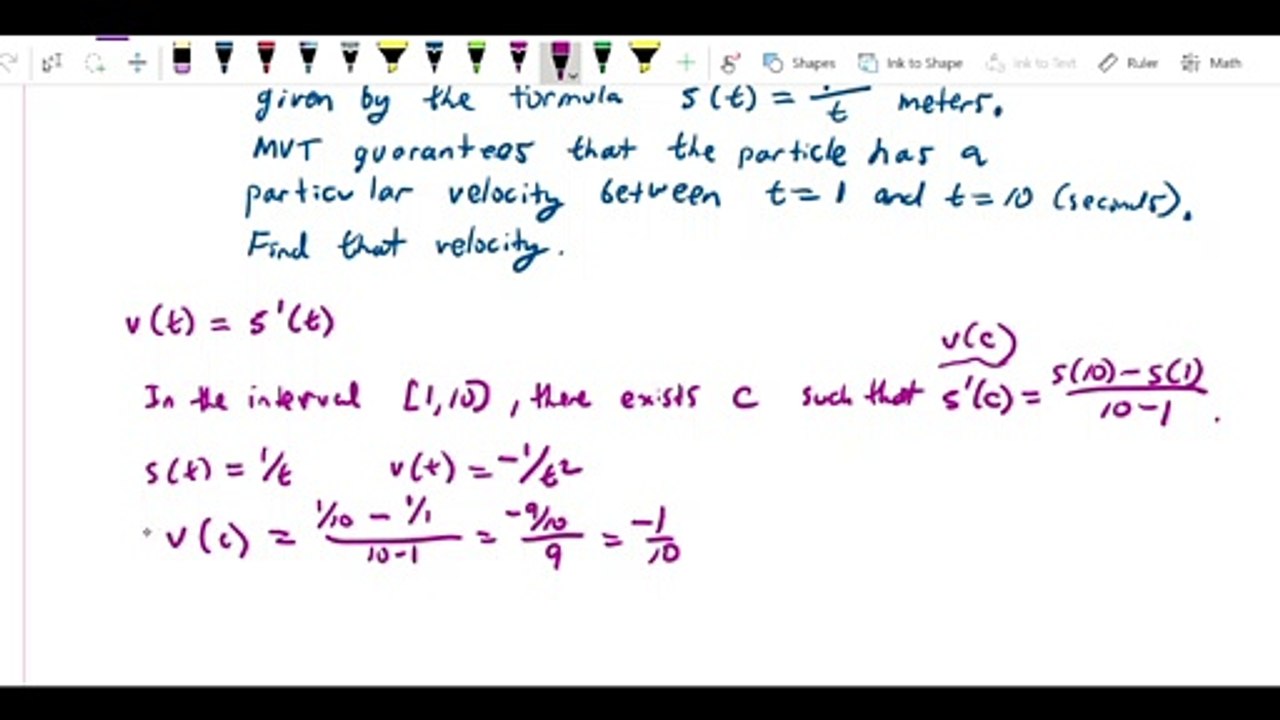 Shapes Ink to Shape Ink to Text Ruler Math
given by the formula s(t) = 1/t meters.
MVT guarantees that the particle has a
particular velocity between t=1 and t=10 (seconds).
Find that velocity.
v(t) = s'(t)
v(c)
In the interval [1,10], there exists c such that s'(c) = s(10)-s(1)/10-1.
s(t) = 1/t v(t) = -1/t²
v(c) = 1/10 - 1/1/10-1 = -9/10/9 = -1/10